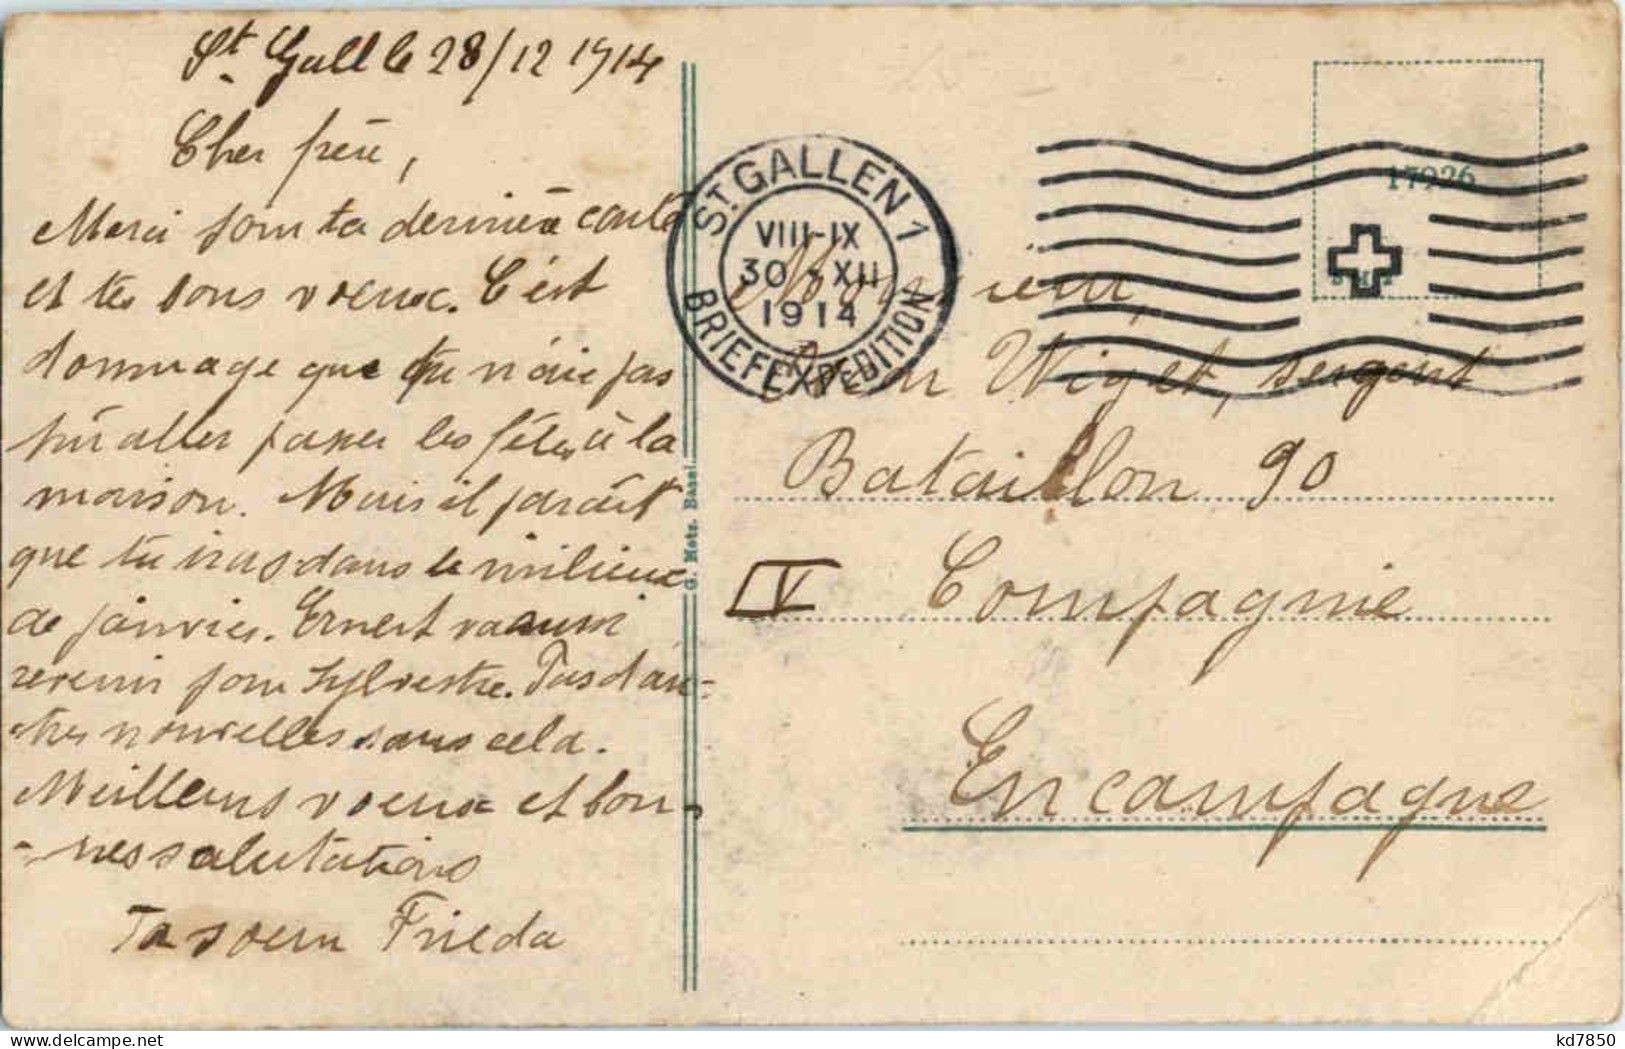 St. Gall le 28/12 1914
Cher frère,
Merci pour ta dernière carte
et tes bons voeux. C'est
dommage que tu n'aie pas
pu aller passer les fêtes à la
maison. Mais il paraît
que tu iras dans le milieux
de janvier. Ernest va aussi
revenir pour Sylvestre. Pas d'au-
tres nouvelles sans cela.
Meilleurs voeux et bon-
-nes salutations
Ta soeur Frieda
G. Metz, Basel
ST. GALLEN 1
VIII-IX
30 XII
1914
BRIEFEXPEDITION
17926
Monsieur,
Wiget, sergent
Bataillon 90
IV Compagnie
En campagne
kd7850